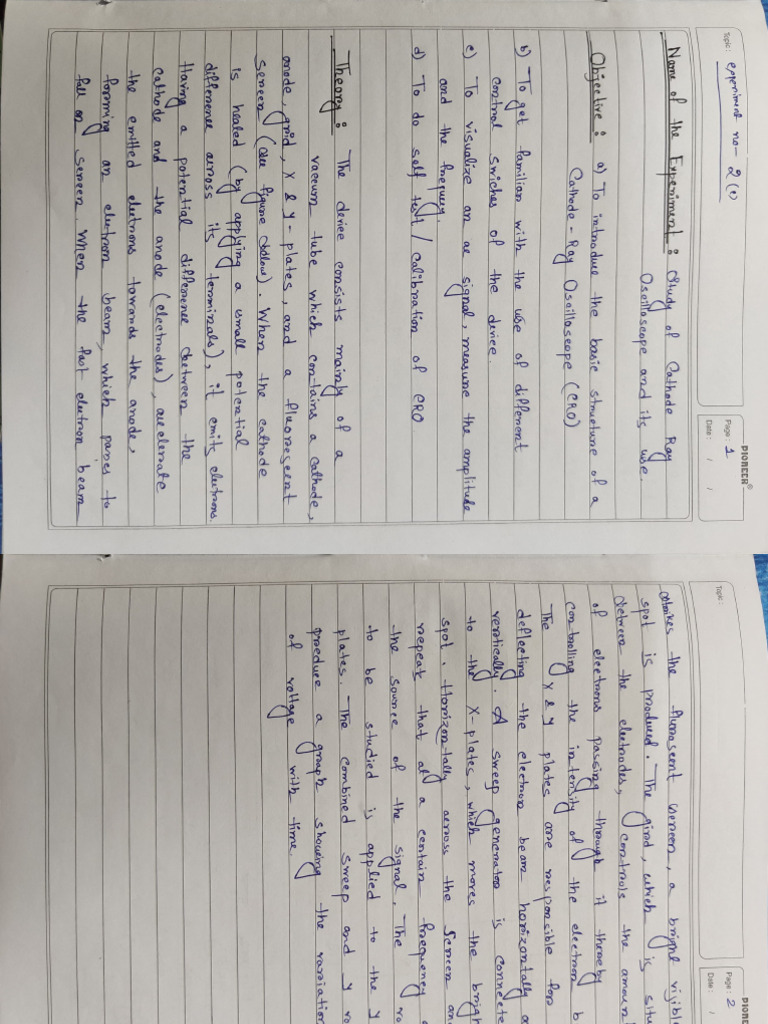 PIONEER
Topic: experiment no- 2(1)
Page: 1
Date: / /
Name of the Experiment: Study of Cathode Ray
Oscilloscope and its use.
Objective: a) To introdue the basic structure of a
Cathode-Ray Oscilloscope (CRO)
b) To get familian with the use of different
control swiches of the device.
c) To visualize an ac signal, measure the amplitude
and the frequency.
d) To do self test / Calibration of CRO
Theory: The device consists mainly of a
vaccum tube which contains a cathode,
anode, grid, X & Y-plates, and a fluorescent
screen (see figure below). When the cathode
is heated (by applying a small potential
difference across its terminals), it emits electrons.
Having a potential difference between the
cathode and the anode (electrodes), accelerate
the emitted electrons towards the anode,
forming an electron beam, which passes to
fall on screen. When the fast electron beam
PIONEER
Topic:
Page: 2
Date:
strikes the flurascent screen, a bright visible
spot is produced. The grid, which is situ
between the electrodes, controls the amoun
of electrons passing through it thereby
controlling the intensity of the electron b
The X & Y plates are responsible for
deflecting the electron beam horizontally a
vertically. A sweep generator is connecte
to the X-plates, which moves the brigh
spot. Horizontally across the screen an
repeat that at a certain frequency
the source of the signal. The vo
to be studied is applied to the y
plates. The combined sweep and y vo
produce a graph showing the variation
of voltage with time.